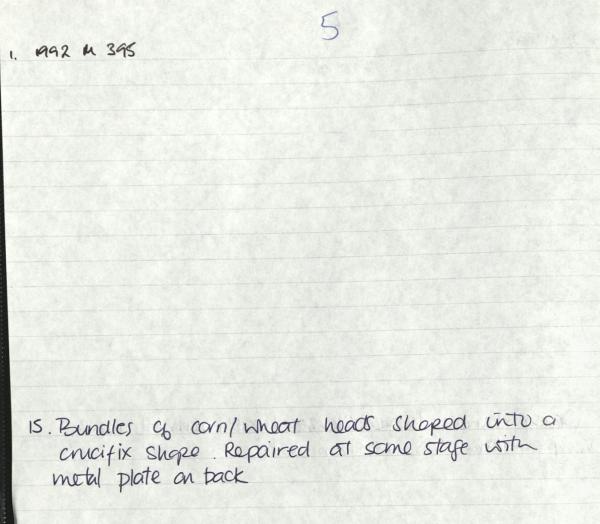 5
1. 1992 M 395
15. Bundles of corn/wheat heads shaped into a
crucifix shape. Repaired at some stage with
metal plate on back